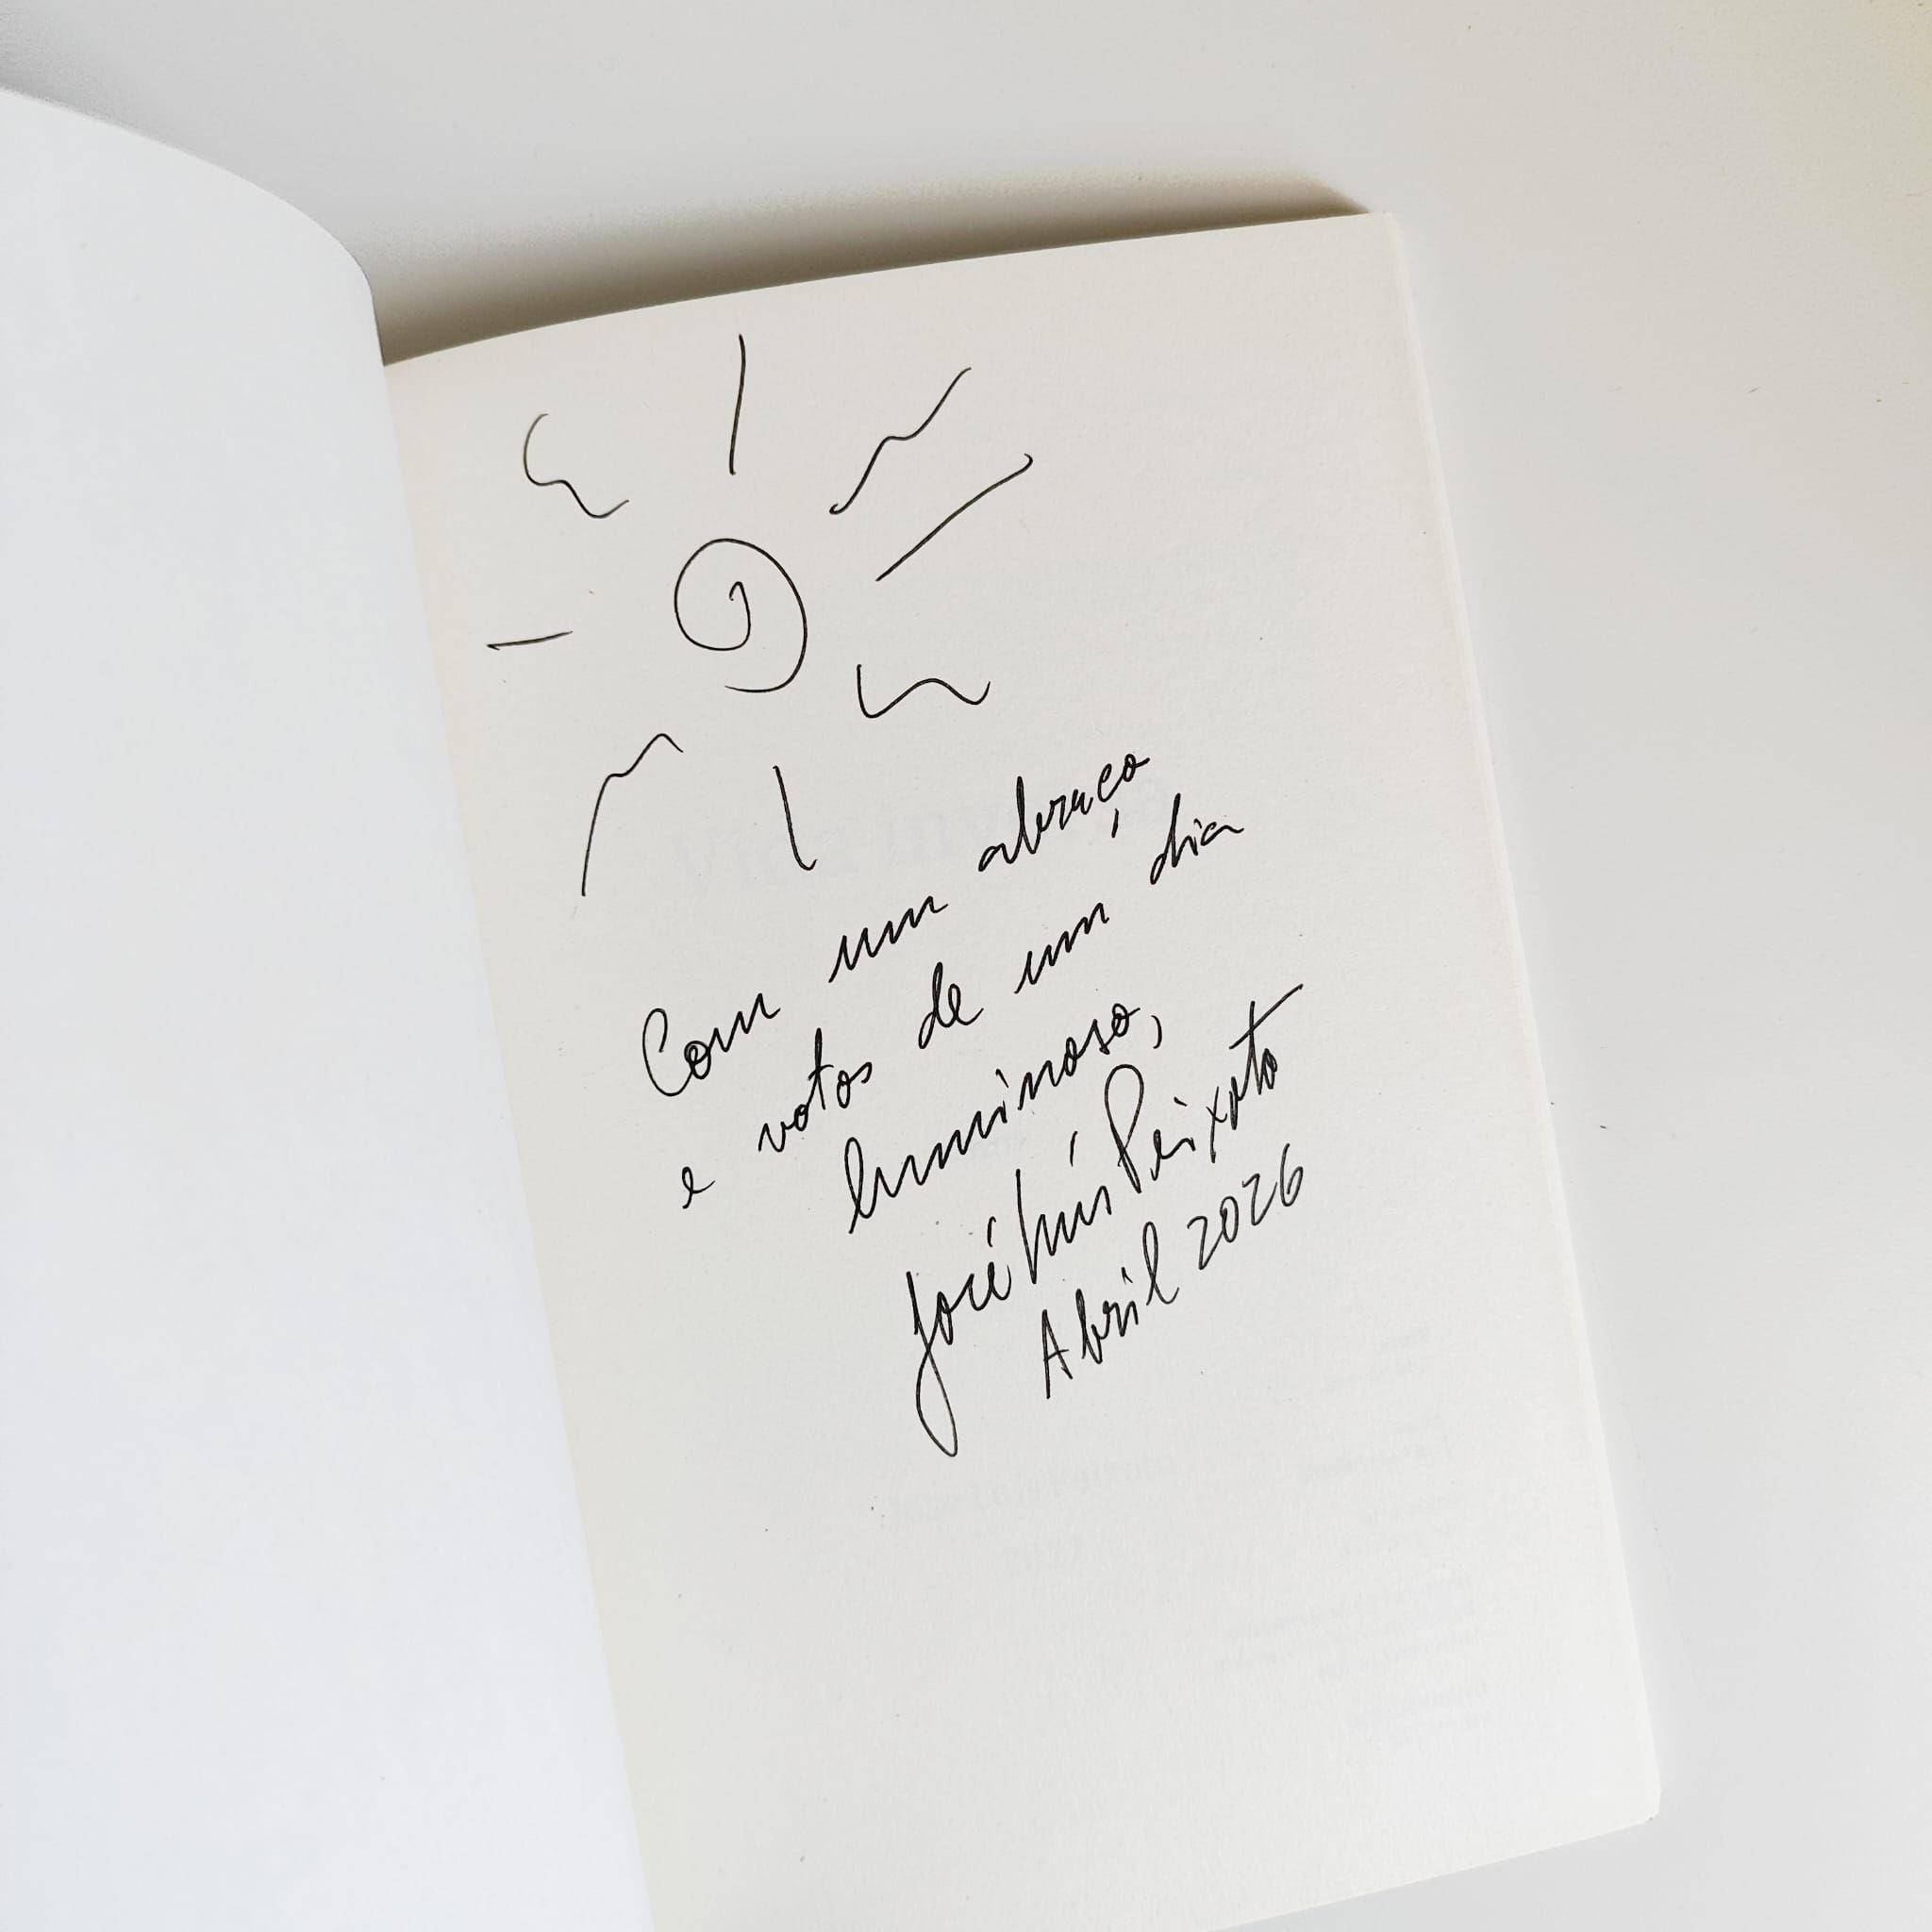 Com um abraço
e votos de um dia
luminoso,
José Luís Peixoto
Abril 2026